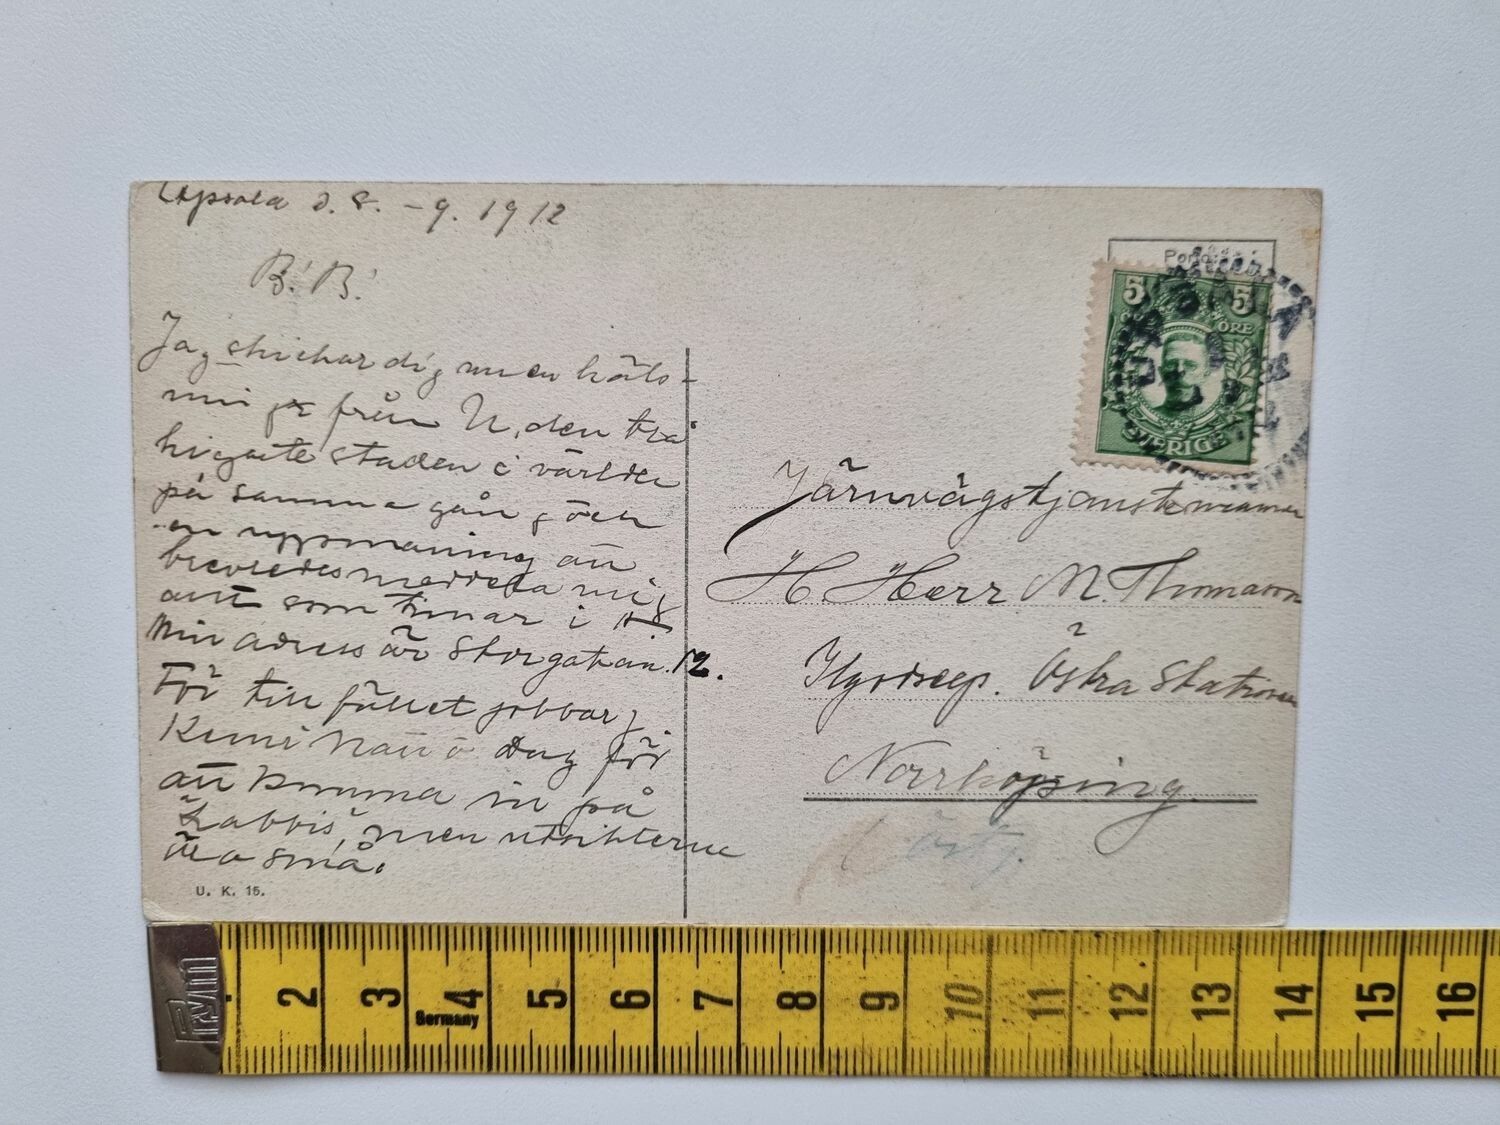 Upsala d. 8. -9. 1912
B.! B.!
Jag skickar dig men en häls-
ning från U, den trå
kigaste staden i världen
på samma gång, och
en uppmaning att
brevledes meddela mig
allt som timar i
Min adress är Storgatan. 12.
För tillfället jobbar j
Kemi natt o dag för
att komma in på
Labbis, men utsikterna
äro små.
U. K. 15.
Porto:
5 5
ÖRE
SVERIGE
UPSALA
Järnvägstjänsteman
H Herr M. Thomasson
Östra Stationen
Norrköping
Pym
2 3 4 5 6 7 8 9 10 11 12 13 14 15 16
Germany